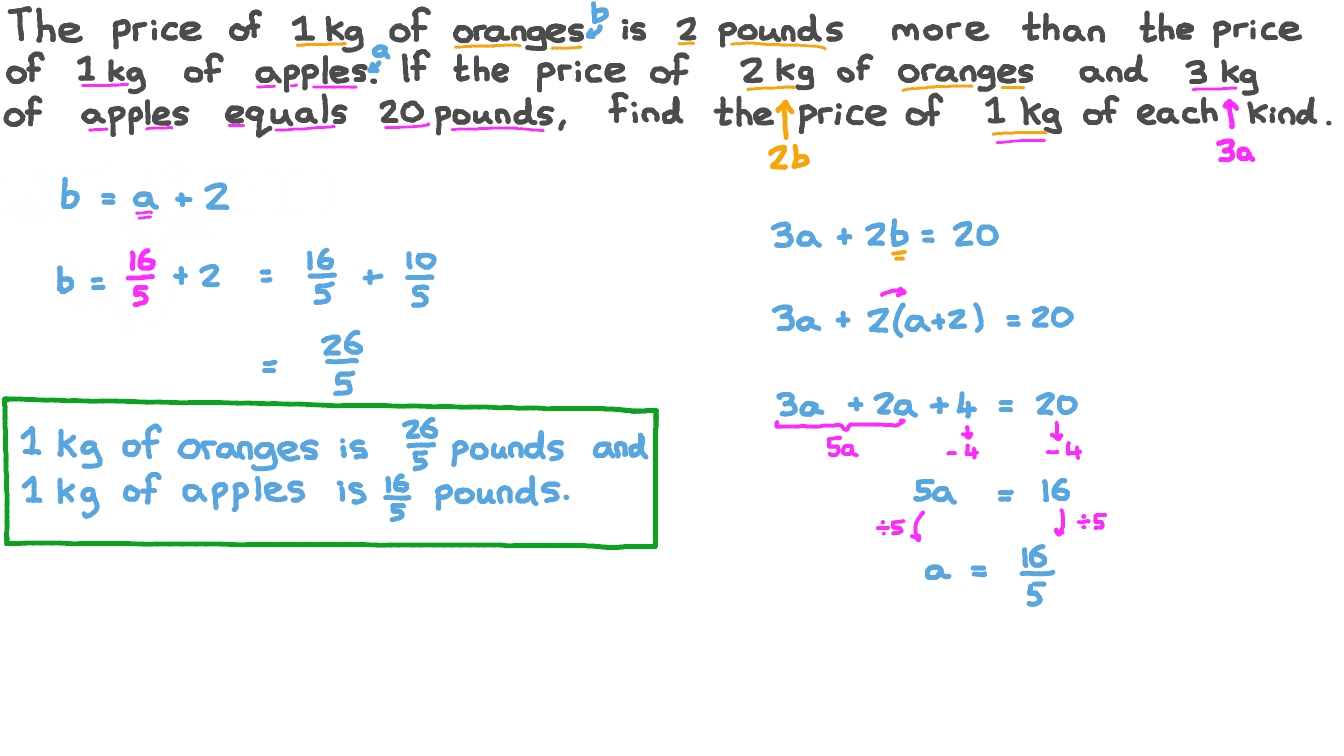 The price of 1 kg of oranges b is 2 pounds more than the price
of 1 kg of apples. a If the price of 2 kg of oranges and 3 kg
of apples equals 20 pounds, find the price of 1 kg of each kind.
2b 3a
b = a + 2
b = 16/5 + 2 = 16/5 + 10/5
= 26/5
1 kg of oranges is 26/5 pounds and
1 kg of apples is 16/5 pounds.
3a + 2b = 20
3a + 2(a+2) = 20
3a + 2a + 4 = 20
5a -4 -4
5a = 16
÷5 ÷5
a = 16/5